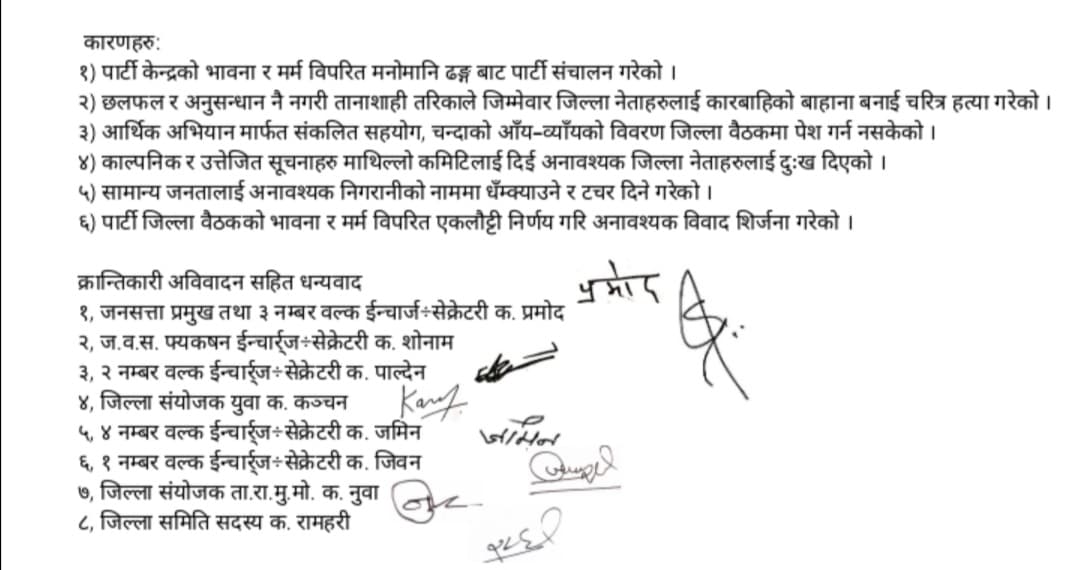 कारणहरु:
१) पार्टी केन्द्रको भावना र मर्म विपरित मनोमानि ढङ्ग बाट पार्टी संचालन गरेको ।
२) छलफल र अनुसन्धान नै नगरी तानाशाही तरिकाले जिम्मेवार जिल्ला नेताहरुलाई कारबाहिको बाहाना बनाई चरित्र हत्या गरेको ।
३) आर्थिक अभियान मार्फत संकलित सहयोग, चन्दाको आँय-व्याँयको विवरण जिल्ला वैठकमा पेश गर्न नसकेको ।
४) काल्पनिक र उत्तेजित सूचनाहरु माथिल्लो कमिटिलाई दिई अनावश्यक जिल्ला नेताहरुलाई दुःख दिएको ।
५) सामान्य जनतालाई अनावश्यक निगरानीको नाममा धँम्क्याउने र टचर दिने गरेको ।
६) पार्टी जिल्ला वैठकको भावना र मर्म विपरित एकलौट्टी निर्णय गरि अनावश्यक विवाद शिर्जना गरेको ।
क्रान्तिकारी अविवादन सहित धन्यवाद
१, जनसत्ता प्रमुख तथा ३ नम्बर वल्क ईन्चार्ज÷सेक्रेटरी क. प्रमोद प्रमोद
२, ज.व.स. फ्यकषन ईन्चार्र्ज÷सेक्रेटरी क. शोनाम
३, २ नम्बर वल्क ईन्चार्र्ज÷सेक्रेटरी क. पाल्देन
४, जिल्ला संयोजक युवा क. कञ्चन
५, ४ नम्बर वल्क ईन्चार्र्ज÷सेक्रेटरी क. जमिन जमिन
६, १ नम्बर वल्क ईन्चार्र्ज÷सेक्रेटरी क. जिवन
७, जिल्ला संयोजक ता.रा.मु.मो. क. नुवा
८, जिल्ला समिति सदस्य क. रामहरी